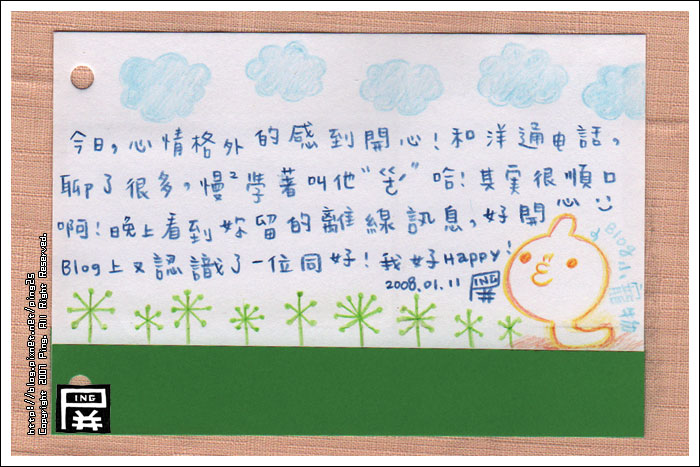 今日，心情格外的感到開心！和洋通电話，
聊了很多，慢²學著叫他“ㄤˊ”哈！其实很順口
啊！晚上看到妳留的離線訊息，好開心
Blog上又認識了一位同好！我好Happy！
2008.01.11 屏
ING
http://blog.pixnet.net/ping25
Copyright 2007 Ping. All Right Reserved.